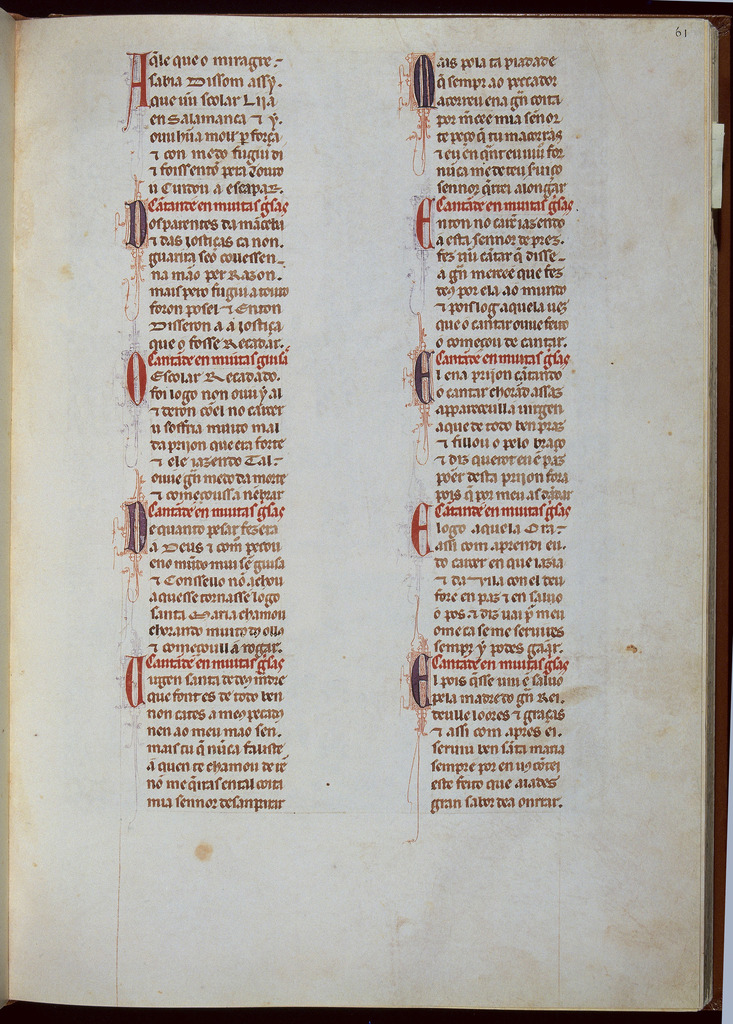 61
A q̃le que o miragre
sabia Dissom assy.
que un scolar Liia
en Salamanca ⁊ y.
ouu hũa moll̃ ꝑ força
⁊ con medo fugiu di
⁊ foiss entõ pera
u Cuidou a escapar.
Cantãde en muitas g̃sas
Dos parentes da mãceba
⁊ das iostiças ca non.
guarira seo couessen
na mão per Razon.
mais pero fugiu a touto
foron pos el ⁊ Enton
Disseron a a iostiça
que o fosse Recadar.
Cantãde en muitas guisã
O Escolar Recadado.
foi logo non ouu ỹ al
⁊ deron cõel no carcer
u soffria muito mal
da prijon que era forte
⁊ ele iazendo Tal
ouue g̃n medo da morte
⁊ començoussa nẽbrar
Cantãde en muitas g̃sas
De quanto pesar fezera
a Deus ⁊ com̃ pecou
eno mũdo mui sẽ guisa
⁊ Consello nõ achou
a quesse tornasse logo
santa Maria chamou
chorando muito dos ollos
⁊ começoull a rogar.
Cantãde en muitas g̃sas
Uirgen santa de deus madre
que font es de todo ben
non cates a meus pecados
nen ao meu mao sen.
mais tu q̃ nũca faliste
a quen te chamou de
nõ me q̃iras en tal coita
mia sennor desanparar
Mais pola ta piadade
q̃ sempr ao peccador
acorreu ena g̃n coita
por m̃cee mia señor
te peço q̃ tu macorras
⁊ eu en q̃nt eu uiuo for
nũca me de teu seruiço
sennor q̃rrei alongar
Cantãde en muitas g̃sas
Enton no carcer iazendo
a esta sennor de prez.
fez un cãtar q̃ disse
a g̃n mercee que fez
deus por ela ao mundo
⁊ pois log aquela uez
que o cantar ouue feito
o começou de cantar.
Cantãde en muitas g̃sas
El ena prijon cãtando
o cantar chorãd assaz
appareceulla uirgen
a que de todo ben praz
⁊ fillou o pelo braço
⁊ diz quero en ẽ paz
poer desta prijon fora
pois q̃ por meu as dãdar
Cãtande en muitas g̃sas
E logo aquela Ora
assi com aprendi eu.
do carcer en que iazia
⁊ da vila con el deu
fore en paz ⁊ en saluo
o pos ⁊ diz uai ꝑ meu
ome ca se me seruires
sempr ỹ podes gãar.
Cantãde en muitas g̃sas
El pois q̃sse uiu ẽ saluo
pela madre do g̃n Rei.
deulle loores ⁊ graças
⁊ assi com apres ei.
seruiu ben sãta maria
sempre por en uos cõtei
este feito que aiades
gran sabor de a onrrar.